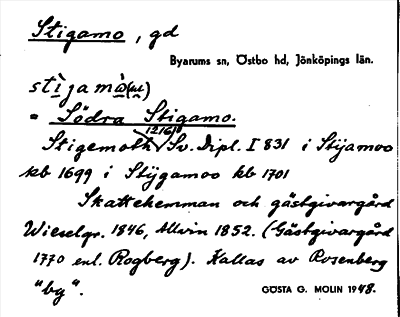 Stigamo, gd
Byarums sn, Östbo hd, Jönköpings län.
stìjamò(w)
= Södra Stigamo.
1216
Stigemoth Sv. Dipl. I 831 i Stijamoo
kb 1699 i Stÿgamoo kb 1701
Skattehemman och gästgivargård
Wieselgr. 1846, Allvin 1852. (Gästgivargård
1770 enl. Rogberg). Kallas av Rosenberg
"by".
GÖSTA G. MOLIN 1948.